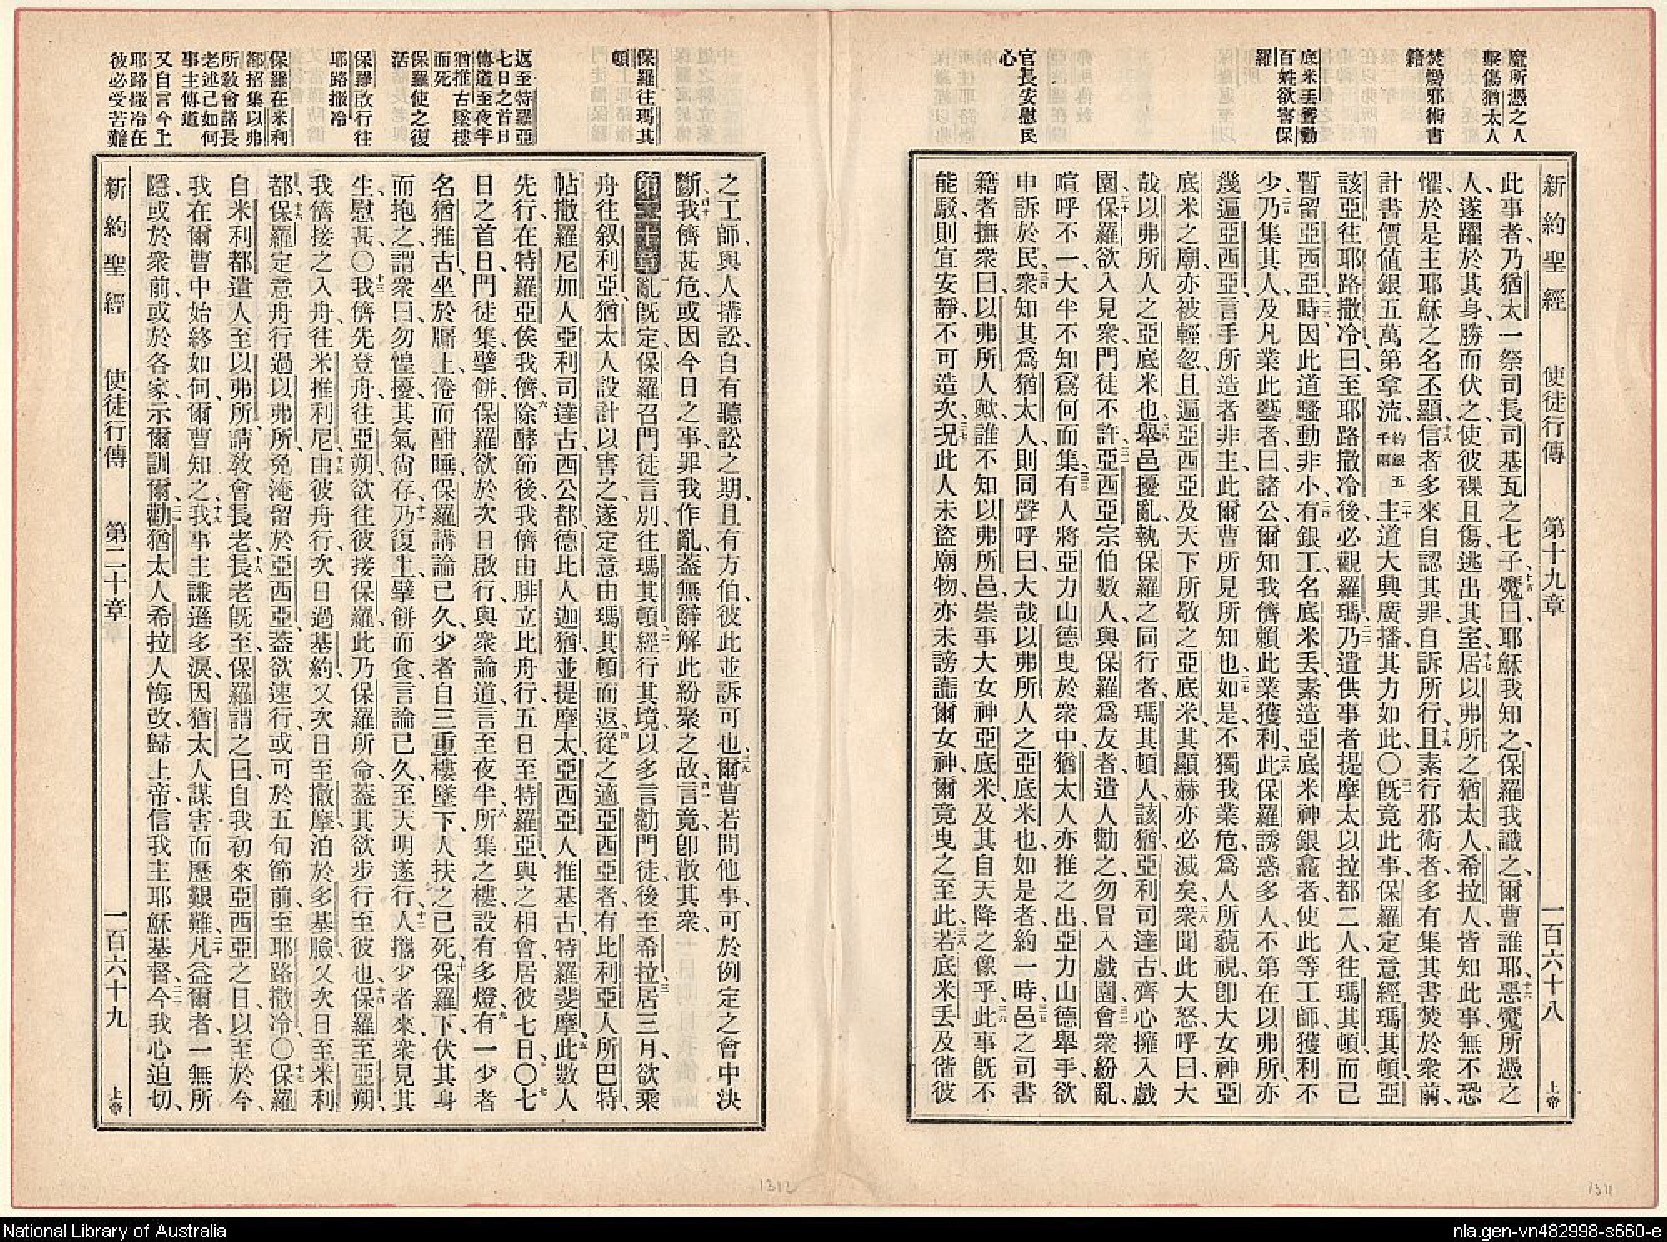 魔所憑之人
擊傷猶太人
焚燬邪術書
籍
底米丟聳動
百姓欲害保
羅
官長安慰民
心
新約聖經 使徒行傳 第十九章 一百六十八 上帝
此事者、乃猶太一祭司長司基瓦之七子、魔曰、耶穌我知之、保羅我識之、爾曹誰耶、惡魔所憑之
人、遂躍於其身、勝而伏之、使彼裸且傷、逃出其室、居以弗所之猶太人、希拉人、皆知此事、無不恐
懼、於是主耶穌之名丕顯、信者多來自認其罪、自訴所行、且素行邪術者、多有集其書焚於衆前、
計書價値銀五萬第拿流、約銀五千兩 主道大興廣播、其力如此、〇旣竟此事、保羅定意經瑪其頓亞
該亞、往耶路撒冷、曰、至耶路撒冷後、必觀羅瑪、乃遣供事者提摩太以拉都二人、往瑪其頓、而己
暫留亞西亞、時因此道騷動非小、有銀工名底米丟、素造亞底米神銀龕者、使此等工師獲利不
少、乃集其人、及凡業此藝者、曰、諸公、爾知我儕賴此業獲利、此保羅誘惑多人、不第在以弗所、亦
幾遍亞西亞、言手所造者非主、此爾曹所見所知也、如是、不獨我業危、爲人所藐視、卽大女神亞
底米之廟、亦被輕忽、且遍亞西亞及天下所敬之亞底米、其顯赫亦必滅矣、衆聞此大怒、呼曰、大
哉以弗所人之亞底米也、舉邑擾亂、執保羅之同行者、瑪其頓人該猶、亞利司達古、齊心擁入戲
園、保羅欲入見衆、門徒不許、亞西亞宗伯數人、與保羅爲友者、遣人勸之勿冒入戲園、會衆紛亂、
喧呼不一、大半不知爲何而集、有人將亞力山德曳於衆中、猶太人亦推之出、亞力山德舉手、欲
申訴於民、衆知其爲猶太人、則同聲呼曰、大哉以弗所人之亞底米也、如是者約一時、邑之司書
籍者撫衆曰、以弗所人歟、誰不知以弗所邑、崇事大女神亞底米、及其自天降之像乎、此事旣不
能駁、則宜安靜、不可造次、況此人未盜廟物、亦未謗讟爾女神、爾竟曳之至此、若底米丟及偕彼
保羅往瑪其
頓
返至特羅亞
七日之首日
傳道至夜半
猶推古墜樓
而死
保羅使之復
活
保羅啟行往
耶路撒冷
保羅在米利
都招集以弗
所敎會諸長
老述己如何
事主傳道
又自言今上
耶路撒冷在
彼必受苦難
之工師、與人搆訟、自有聽訟之期、且有方伯、彼此並訴可也、爾曹若問他事、可於例定之會中決
斷、我儕甚危、或因今日之事、罪我作亂、蓋無辭解此紛聚之故、言竟卽散其衆、
第二十章 亂旣定、保羅召門徒言別、往瑪其頓、經行其境、以多言勸門徒、後至希拉、居三月、欲乘
舟往叙利亞、猶太人設計以害之、遂定意由瑪其頓而返、從之適亞西亞者、有比利亞人所巴特、
帖撒羅尼加人亞利司達古、西公都、德比人迦猶、並提摩太、亞西亞人推基古、特羅斐摩、此數人
先行、在特羅亞俟我儕、除酵節後、我儕由腓立比舟行、五日至特羅亞、與之相會、居彼七日、〇七
日之首日、門徒集擘餅、保羅欲於次日啟行、與衆論道、言至夜半、所集之樓、設有多燈、有一少者
名猶推古、坐於牖上、倦而酣睡、保羅講論已久、少者自三重樓墜下、人扶之已死、保羅下、伏其身
而抱之、謂衆曰、勿惶擾、其氣尙存、乃復上擘餅而食、言論已久、至天明遂行、人攜少者來、衆見其
生、慰甚、〇我儕先登舟、往亞朔、欲往彼接保羅、此乃保羅所命、蓋其欲步行至彼也、保羅至亞朔、
我儕接之入舟、往米推利尼、由彼舟行、次日過基約、又次日至撒摩、泊於多基臉、又次日至米利
都、保羅定意舟行過以弗所、免淹留於亞西亞、蓋欲速行、或可於五旬節前、至耶路撒冷、〇保羅
自米利都遣人至以弗所、請敎會長老、長老旣至、保羅謂之曰、自我初來亞西亞之日、以至於今、
我在爾曹中、始終如何、爾曹知之、我事主謙遜多淚、因猶太人謀害而歷艱難、凡益爾者、一無所
隱、或於衆前、或於各家、示爾訓爾、勸猶太人希拉人、悔改歸上帝、信我主耶穌基督、今我心迫切、
新約聖經 使徒行傳 第二十章 一百六十九 上帝
1312
1311
National Library of Australia
nla.gen-vn482998-s660-e